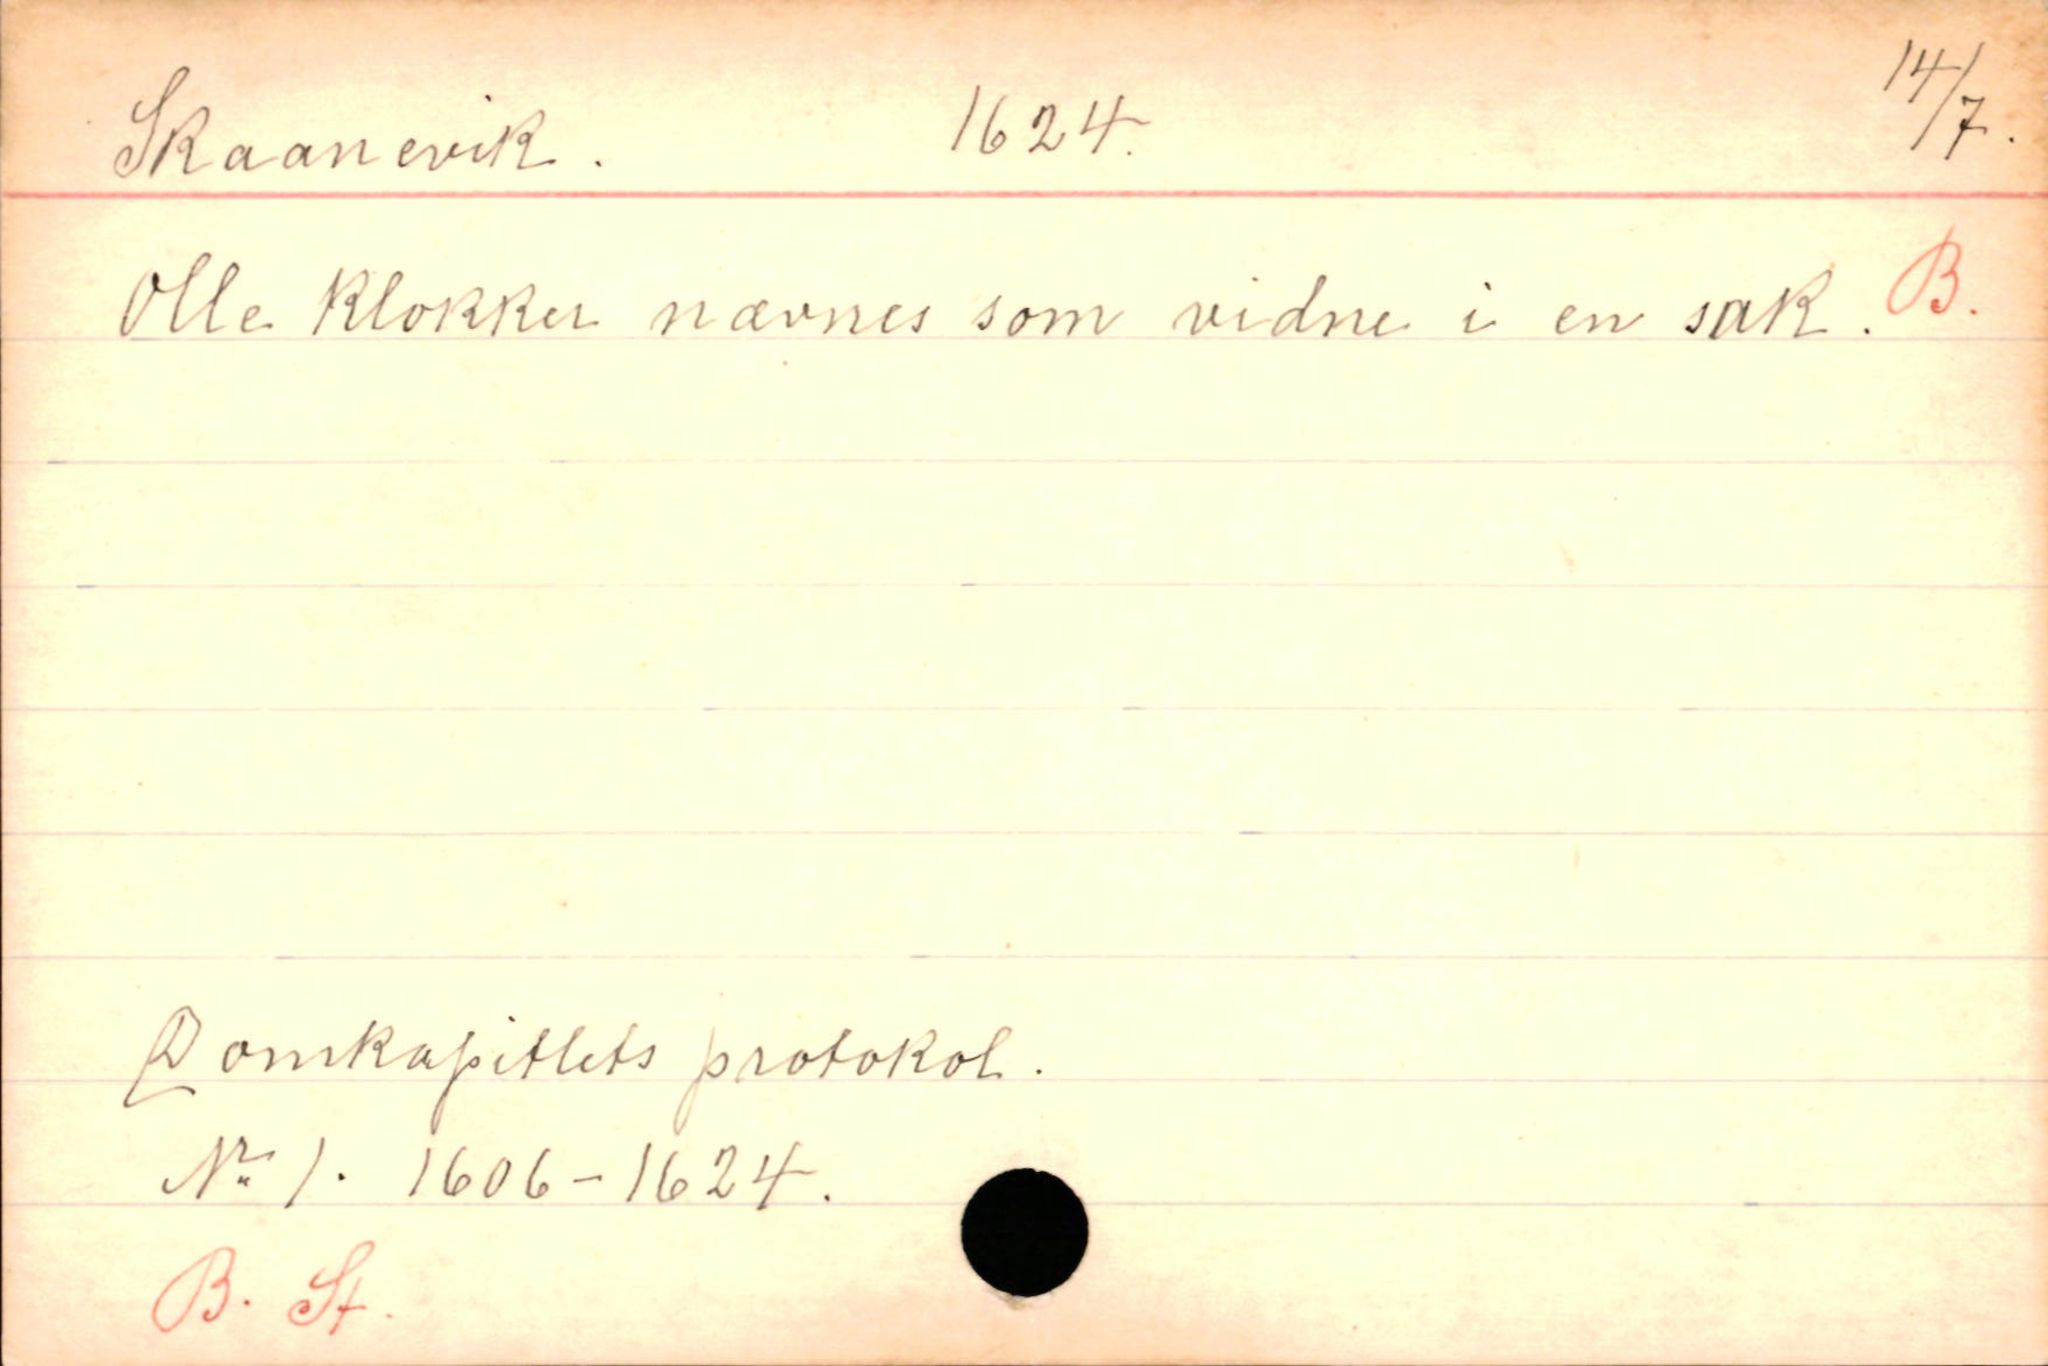 Skaanevik. 1624. 14/7.
Olle klokker nævnes som vidne i en sak. B.
Domkapitlets protokol.
Nr. 1. 1606-1624.
B. St.